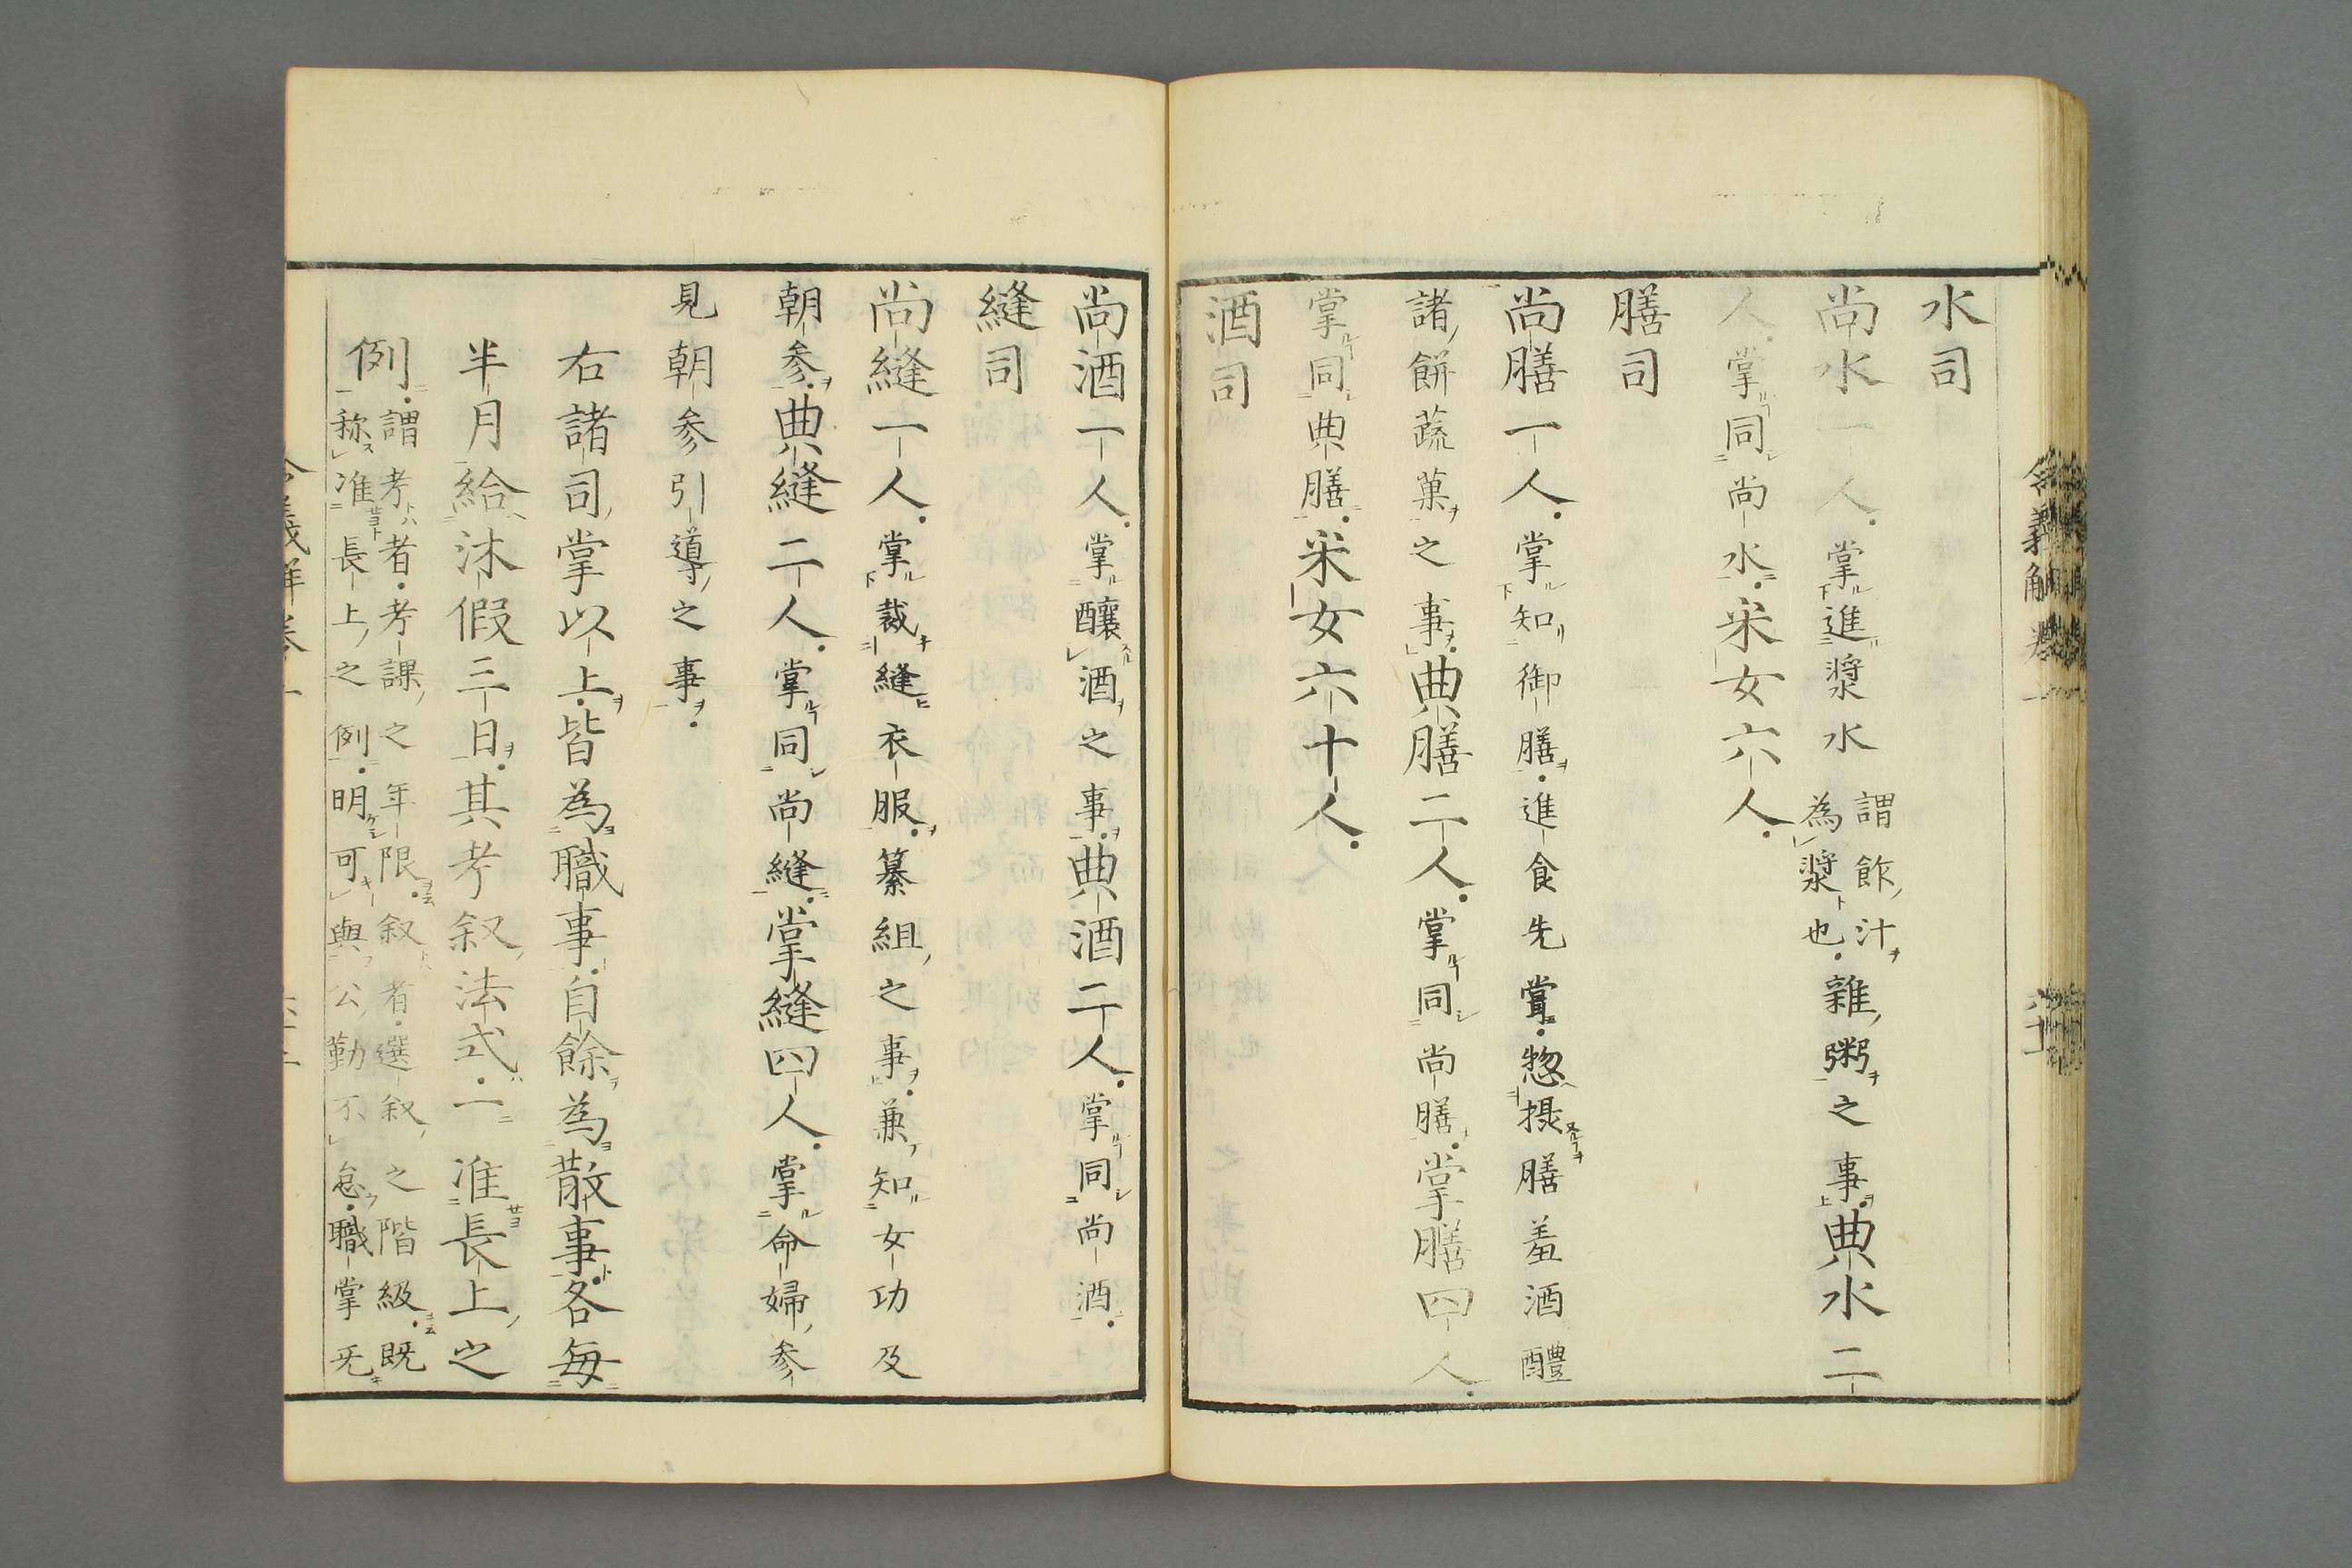 水司
尚水一人。掌進漿水謂飲汁為漿也。雜粥之事。典水二
人。掌同尚水。采女六人。
膳司
尚膳一人。掌知御膳。進食先嘗。惣摂膳羞酒醴
諸餅蔬菓之事。典膳二人。掌同尚膳。掌膳四人。
掌同典膳。采女六十人。
酒司
尚酒一人。掌釀酒之事。典酒二人。掌同尚酒。
縫司
尚縫一人。掌裁縫衣服。纂組之事。兼知女功及
朝参。典縫二人。掌同尚縫。掌縫四人。掌命婦参
見朝参引導之事。
右諸司掌以上。皆為職事。自餘為散事。各毎
半月給沐假三日。其考叙法式。一准長上之
例。謂考者。考課之年限。叙者。選叙之階級。既
称准長上之例。明可與公勤不怠。職掌旡